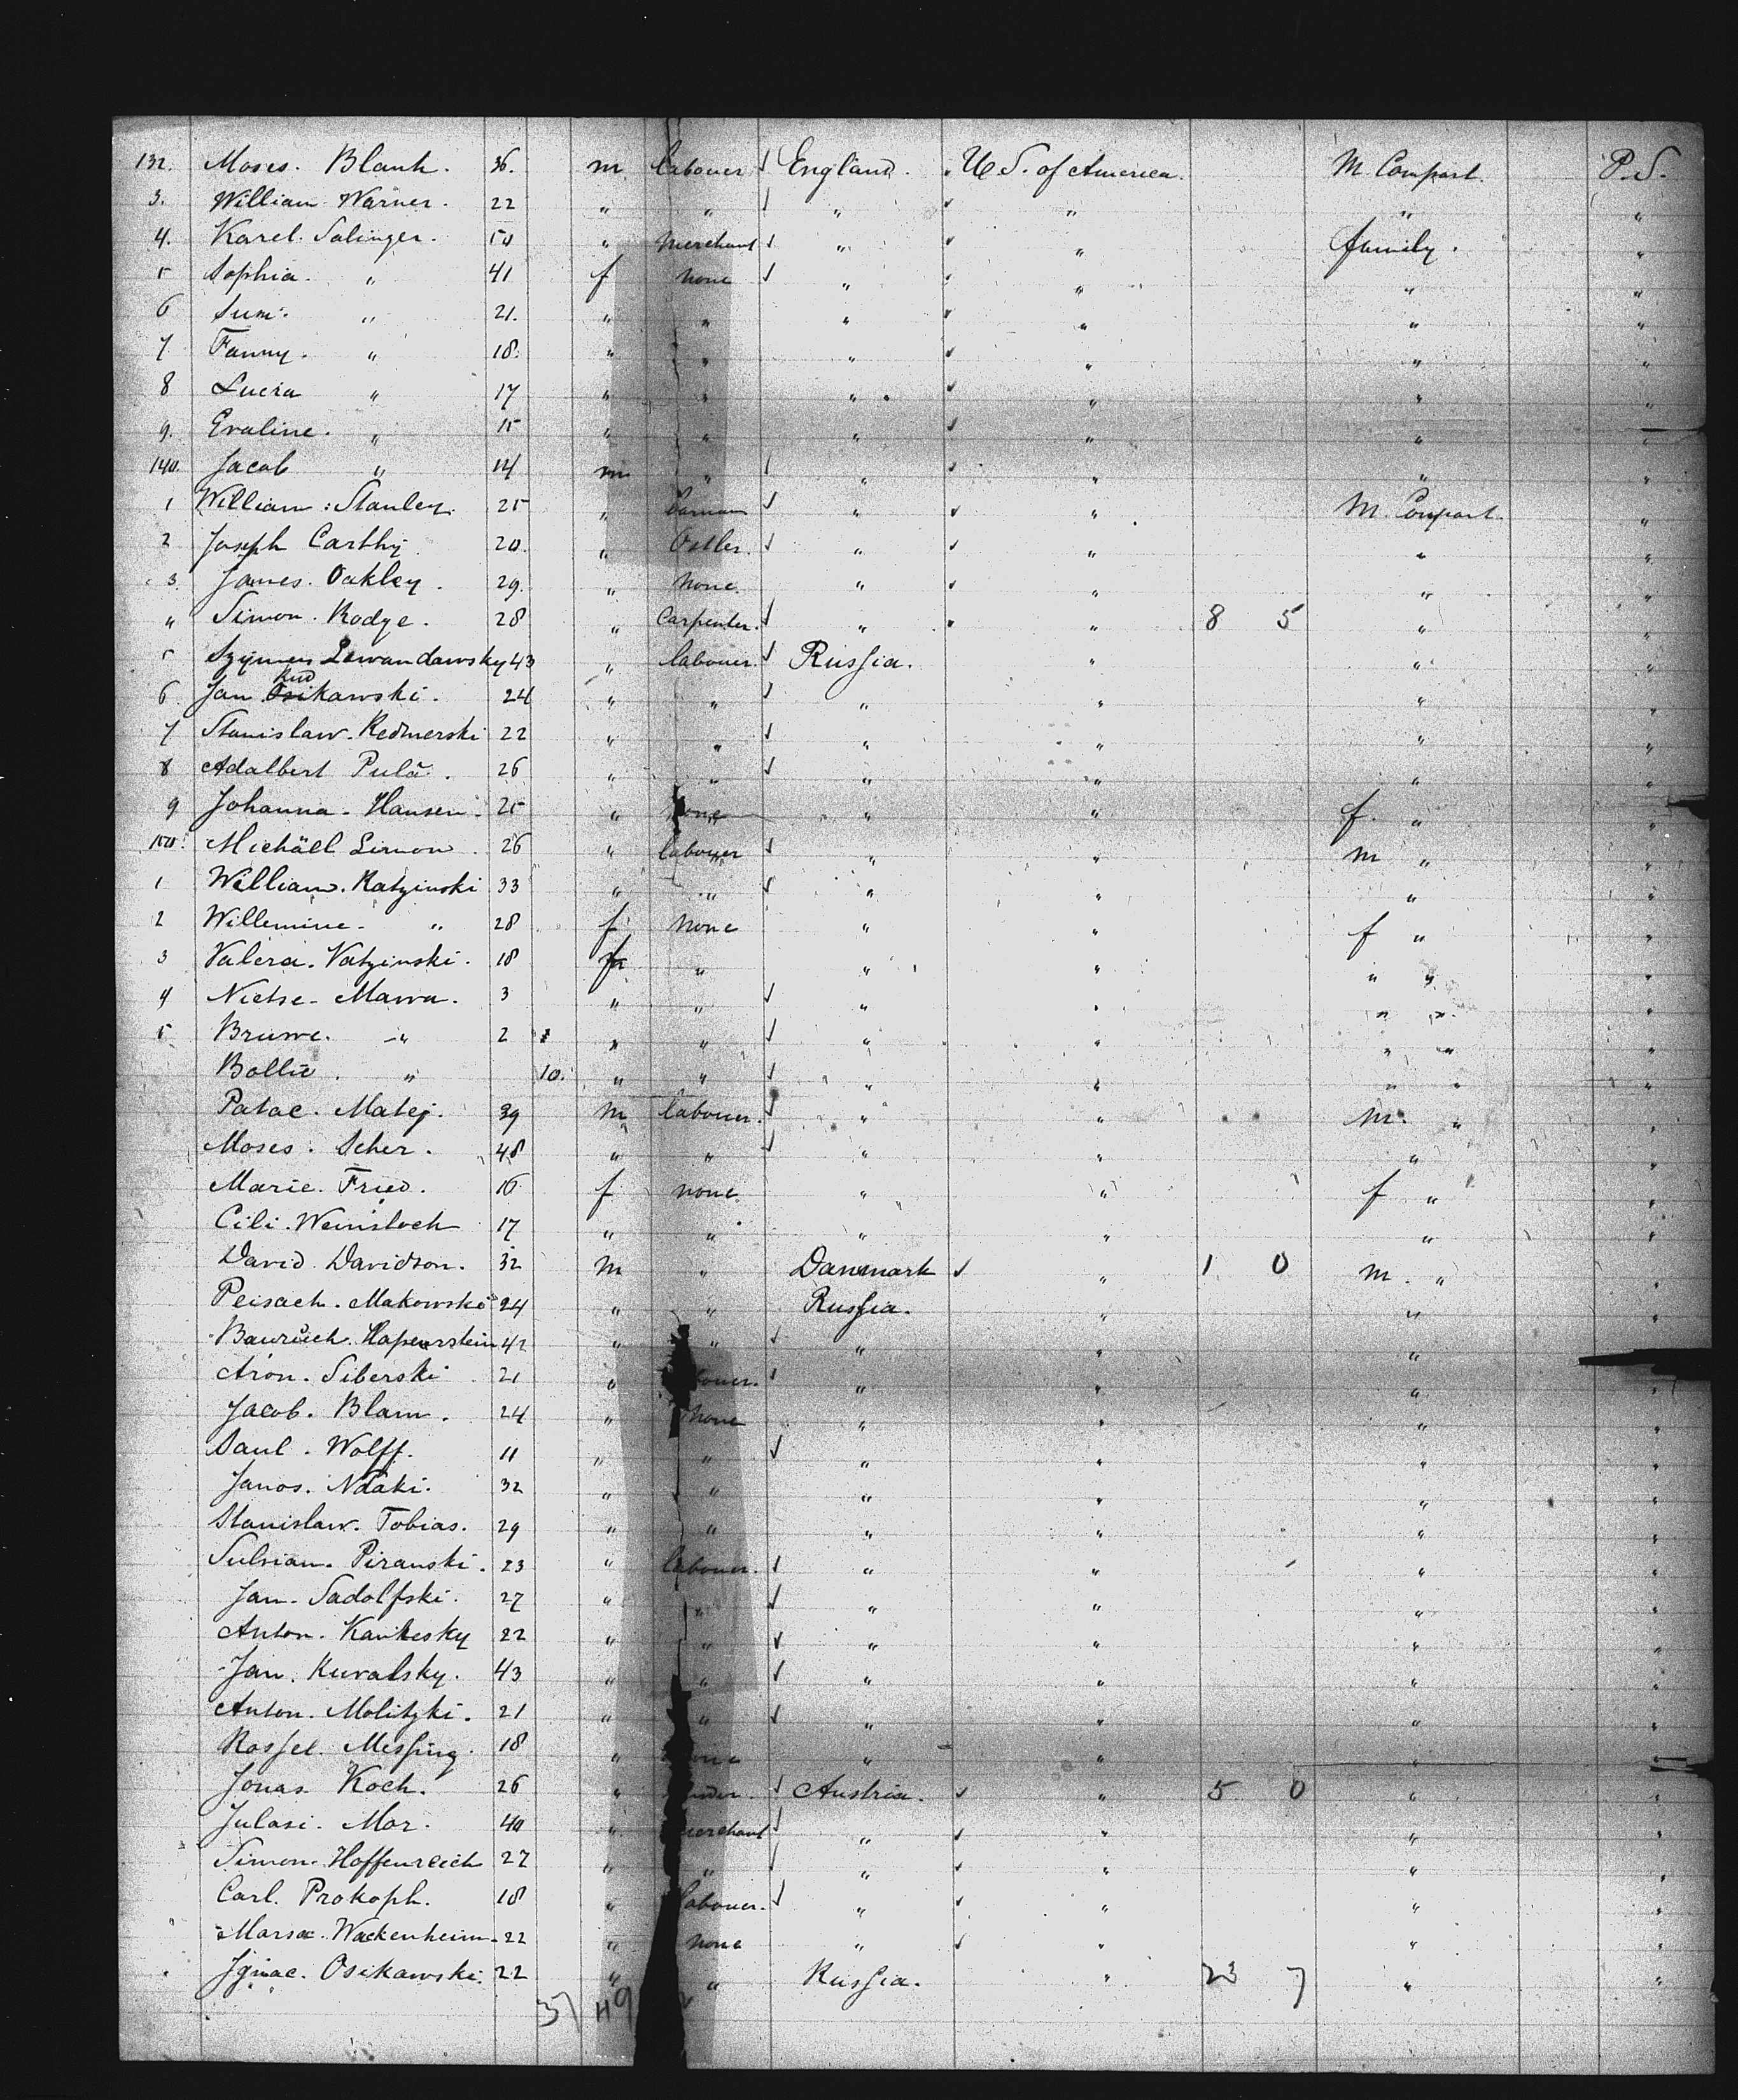 132. Moses. Blank. 36. m labouer England. U S. of America. M Compart. P.S.
3. William Warner. 22 " " " " " "
4. Karel. Salinger. 50 " Merchant " " family. "
5 Sophia. " 41 f none " " " "
6 Sum. " 21. " " " " " "
7 Fanny. " 18. " " " " " "
8 Lucia " 17 " " " " " "
9. Evaline. " 15 " " " " " "
140. Jacob " 14 m " " " " "
1 William. Stanley. 25 " barman " " M. Compart. "
2 Joseph Carthy 20. " Ostler. " " " "
3. James. Oakley. 29. " none. " " " "
" Simon. Rodge. 28 " Carpenter. " " 8 5 " "
5 Szymen Lewandawsky 43 " labouer. Russia. " " "
6 Jan Osikawski. 24 " " " " " "
7 Stanislaw. Redmerski 22 " " " " " "
8 Adalbert Pula. 26 " " " " " "
9 Johanna. Hansen. 25 " none " " f. " "
150. Michäel Simon. 26 " labouer " " m " "
1 William. Katzinski 33 " " " " " "
2 Willemine. " 28 f none " " f " "
3 Valera. Vatzinski. 18 f " " " " " "
4 Nietse. Mawa. 3 " " " " " " "
5 Bruwe. " 2 " " " " " " "
Bollie. " 10. " " " " " " "
Patac. Matej. 39 m labouer. " " m. " "
Moses. Scher. 48 " " " " " "
Marie. Fried. 16 f none " " f " "
Cili. Weinstock 17 " " " " " "
David. Davidson. 32 m " Danmark " 1 0 m. " "
Peisach. Makowski 24 " " Russia. " " "
Bauruch. Hapenrstein 42 " " " " " "
Aron. Siberski 21 " bouer. " " " "
Jacob. Blam. 24 " none " " " "
Saul. Wolff. 11 " " " " " "
Janos. Ndaki. 32 " " " " " "
Stanislaw. Tobias. 29 " " " " " "
Sulvian. Piranski. 23 " labouer. " " " "
Jan. Sadolfski. 27 " " " " " "
Anton. Kankesky 22 " " " " " "
Jan. Kuvalsky. 43 " " " " " "
Anton. Molitzki. 21 " " " " " "
Rossel. Messing. 18 " one " " " "
Jonas. Koch. 26 " Austria. " 5 0 " "
Julasi. Mor. 40 " erchant " " " "
Simon. Hoffenreich 27 " " " " " "
Carl. Prokoph. 18 " labouer. " " " "
Marsa. Wackenheim. 22 " none " " " "
Ignac. Osikawski. 22 " " Russia. " 23 7 " "
37 49